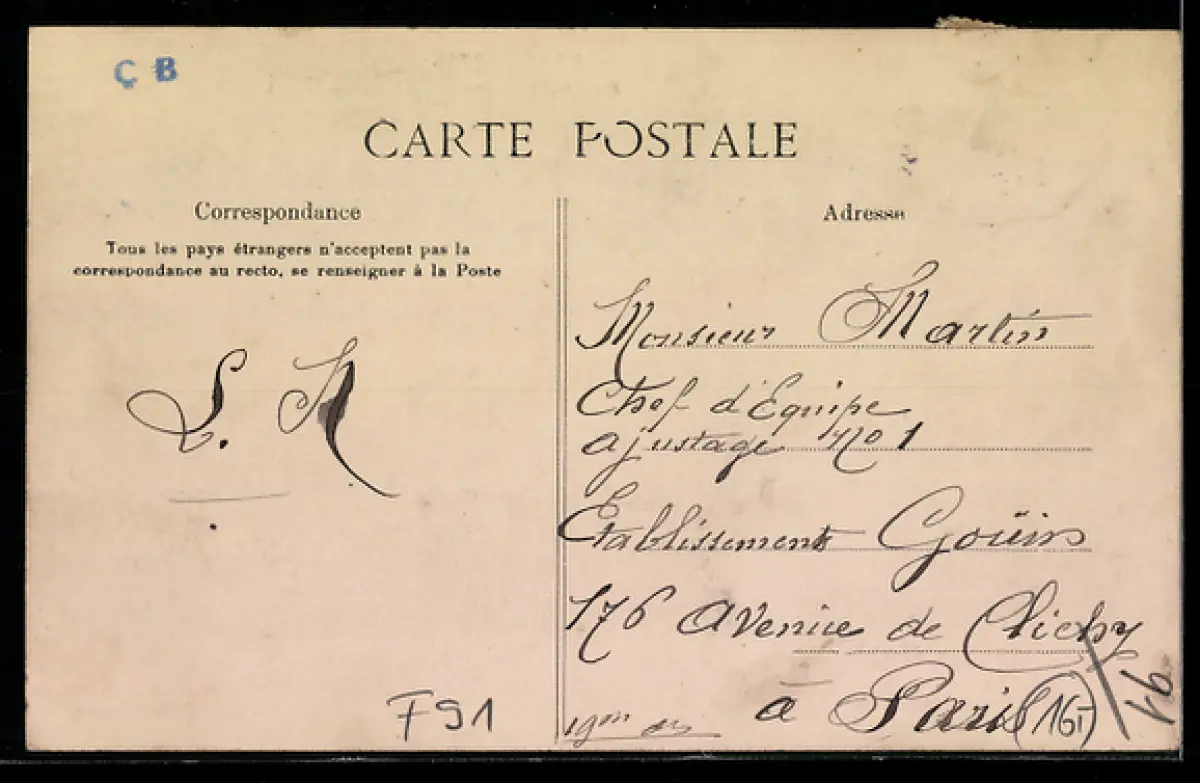 C B
CARTE POSTALE
Correspondance
Tous les pays étrangers n'acceptent pas la
correspondance au recto, se renseigner à la Poste
L. M
F91
Adresse
Monsieur Martin
Chef d'Equipe
ajustage No 1
Etablissements Goüin
176 Avenue de Clichy
à Paris